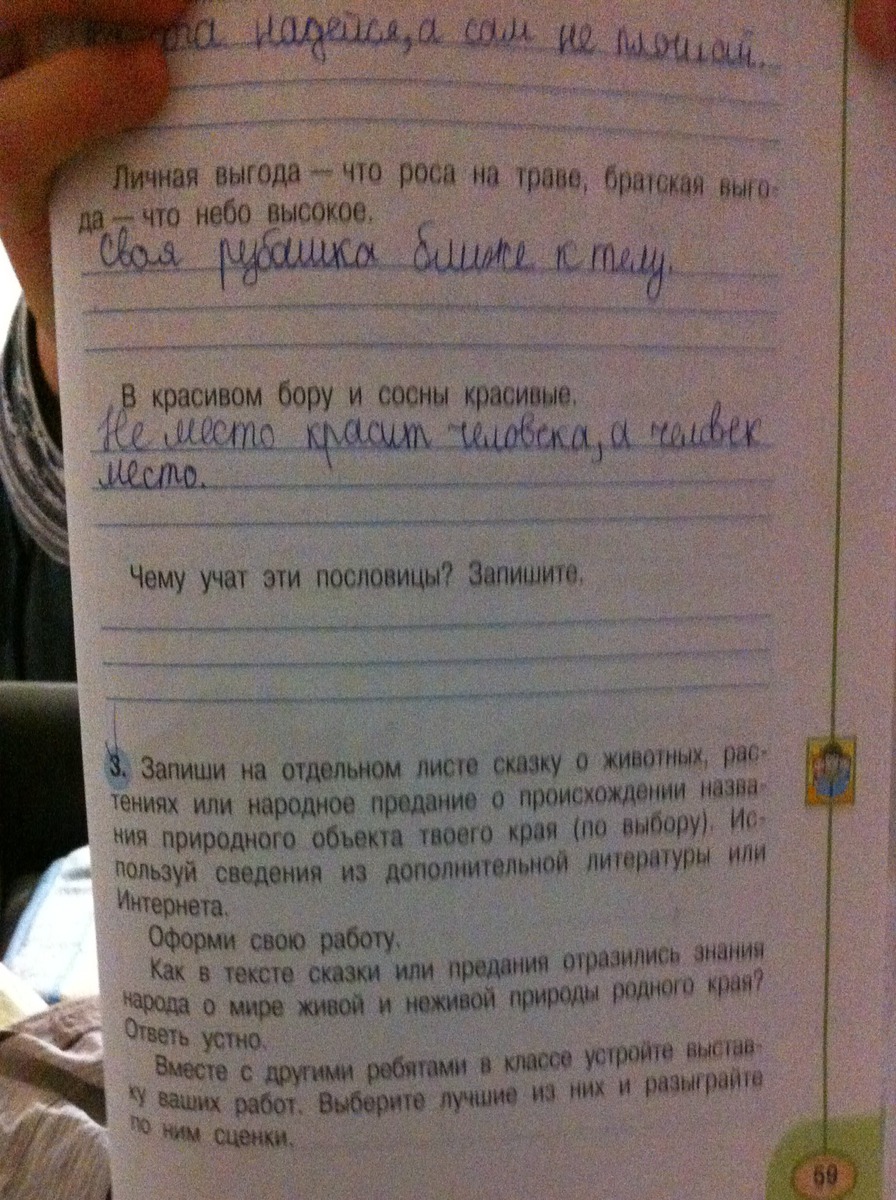 надейся, а сам не плошай.
Личная выгода — что роса на траве, братская выго-
да — что небо высокое.
Своя рубашка ближе к телу.
В красивом бору и сосны красивые.
Не место красит человека, а человек
место.
Чему учат эти пословицы? Запишите.
3. Запиши на отдельном листе сказку о животных, рас-
тениях или народное предание о происхождении назва-
ния природного объекта твоего края (по выбору). Ис-
пользуй сведения из дополнительной литературы или
Интернета.
Оформи свою работу.
Как в тексте сказки или предания отразились знания
народа о мире живой и неживой природы родного края?
Ответь устно.
Вместе с другими ребятами в классе устройте выстав-
ку ваших работ. Выберите лучшие из них и разыграйте
по ним сценки.
69